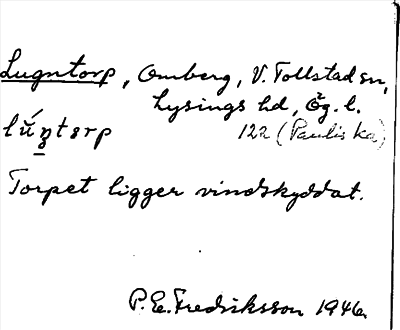 Lugntorp, Omberg, V. Tollstad sn,
Lysings hd, Ög. l.
122 (Paulis ka)
Torpet ligger vindskyddat.
P. E. Fredriksson 1946.